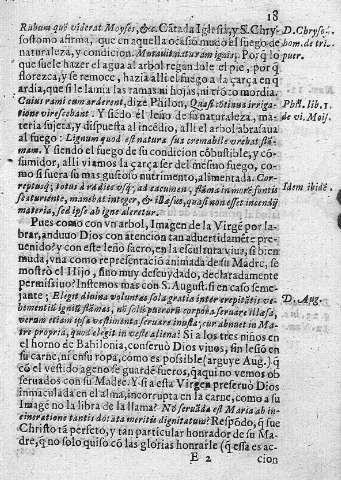 18
Rubum quē viderat Moyses, &c. Cātada Iglesia, y S. Chry-
sostomo afirma, que en aquella ocasiō mudò el fuego de
naturaleza, y condicion. Mutavit naturam ignis. Por q̄ lo
que suele hazer el agua al arbol regandole el pie, por q̄
florezca, y se remoce, hazia alli el fuego a la çarça en q̄
ardia, que si le lamia las ramas ni hojas, ni trōco mordia.
Cuius rami cum arderent, dize Philon, Quasi cōtinua irriga-
tione virescebant. Y siēdo el leño de su naturaleza, ma-
teria sujeta, y dispuesta al incēdio, alli el arbol abrasaua
al fuego: Lignum quod est natura sua cremabile vrebat flā-
mam. Y siendo el fuego de su condicion cōbustible, y cō-
sumidor, alli viamos la çarça ser del mesmo fuego, co-
mo si fuera su mas gustoso nutrimento, alimentada. Cor-
reptusq; totus à radice vsq; ad cacumen, flāma in more fontis
scaturiente, manebat integer, & illæsus, quasi non esset incendij
materia, sed ipse ab igne aleretur.
Pues como con vn arbol, Imagen de la Virgē por la-
brar, anduuo Dios con atencion tan aduertidamēte pre-
uenido? y con este leño sacro, en la escultura viua, si bien
muda, vna como representació animada de su Madre, se
mostrò el Hijo, sino muy descuydado, declaradamente
permissiuo? Instemos mas con S. August. si en caso seme-
jante; Elegit divina voluntas sola gratia inter erepitatis ve-
hementiū igniū flāmas, nō solū puerorū corpora seruare illæsa,
verum etiam ipsa vestimenta seruare inusta; cur abnuet in Ma-
tre propria, quod elegit in veste aliena? Si a los tres niños en
el horno de Babilonia, conseruò Dios viuos, sin lesiō en
su carne, ni en su ropa, como es possible (arguye Aug.) q̄
cō el vestido ageno se guardē sueros, q̄ aqui no vemos ob
seruados con su Madre. Y si a esta Virgen preseruò Dios
inmaculada en el alma, incorrupta en la carne, como a su
Imagē no la libra de la llama? Nō seruāda est Maria ab in-
cineratione tantis dotata meritis dignitatum? Respōdo, q̄ sue
Christo tā perfeto, y tan particular honrador de su Ma-
dre, q̄ no solo quiso cō las glorias honrarle (q̄ essa es ac-
E 2 cion
D. Chryso-
hom. de tri.
puer.
Phil. lib. 1.
de vi. Mois.
Idem ibidē.
D. Aug.